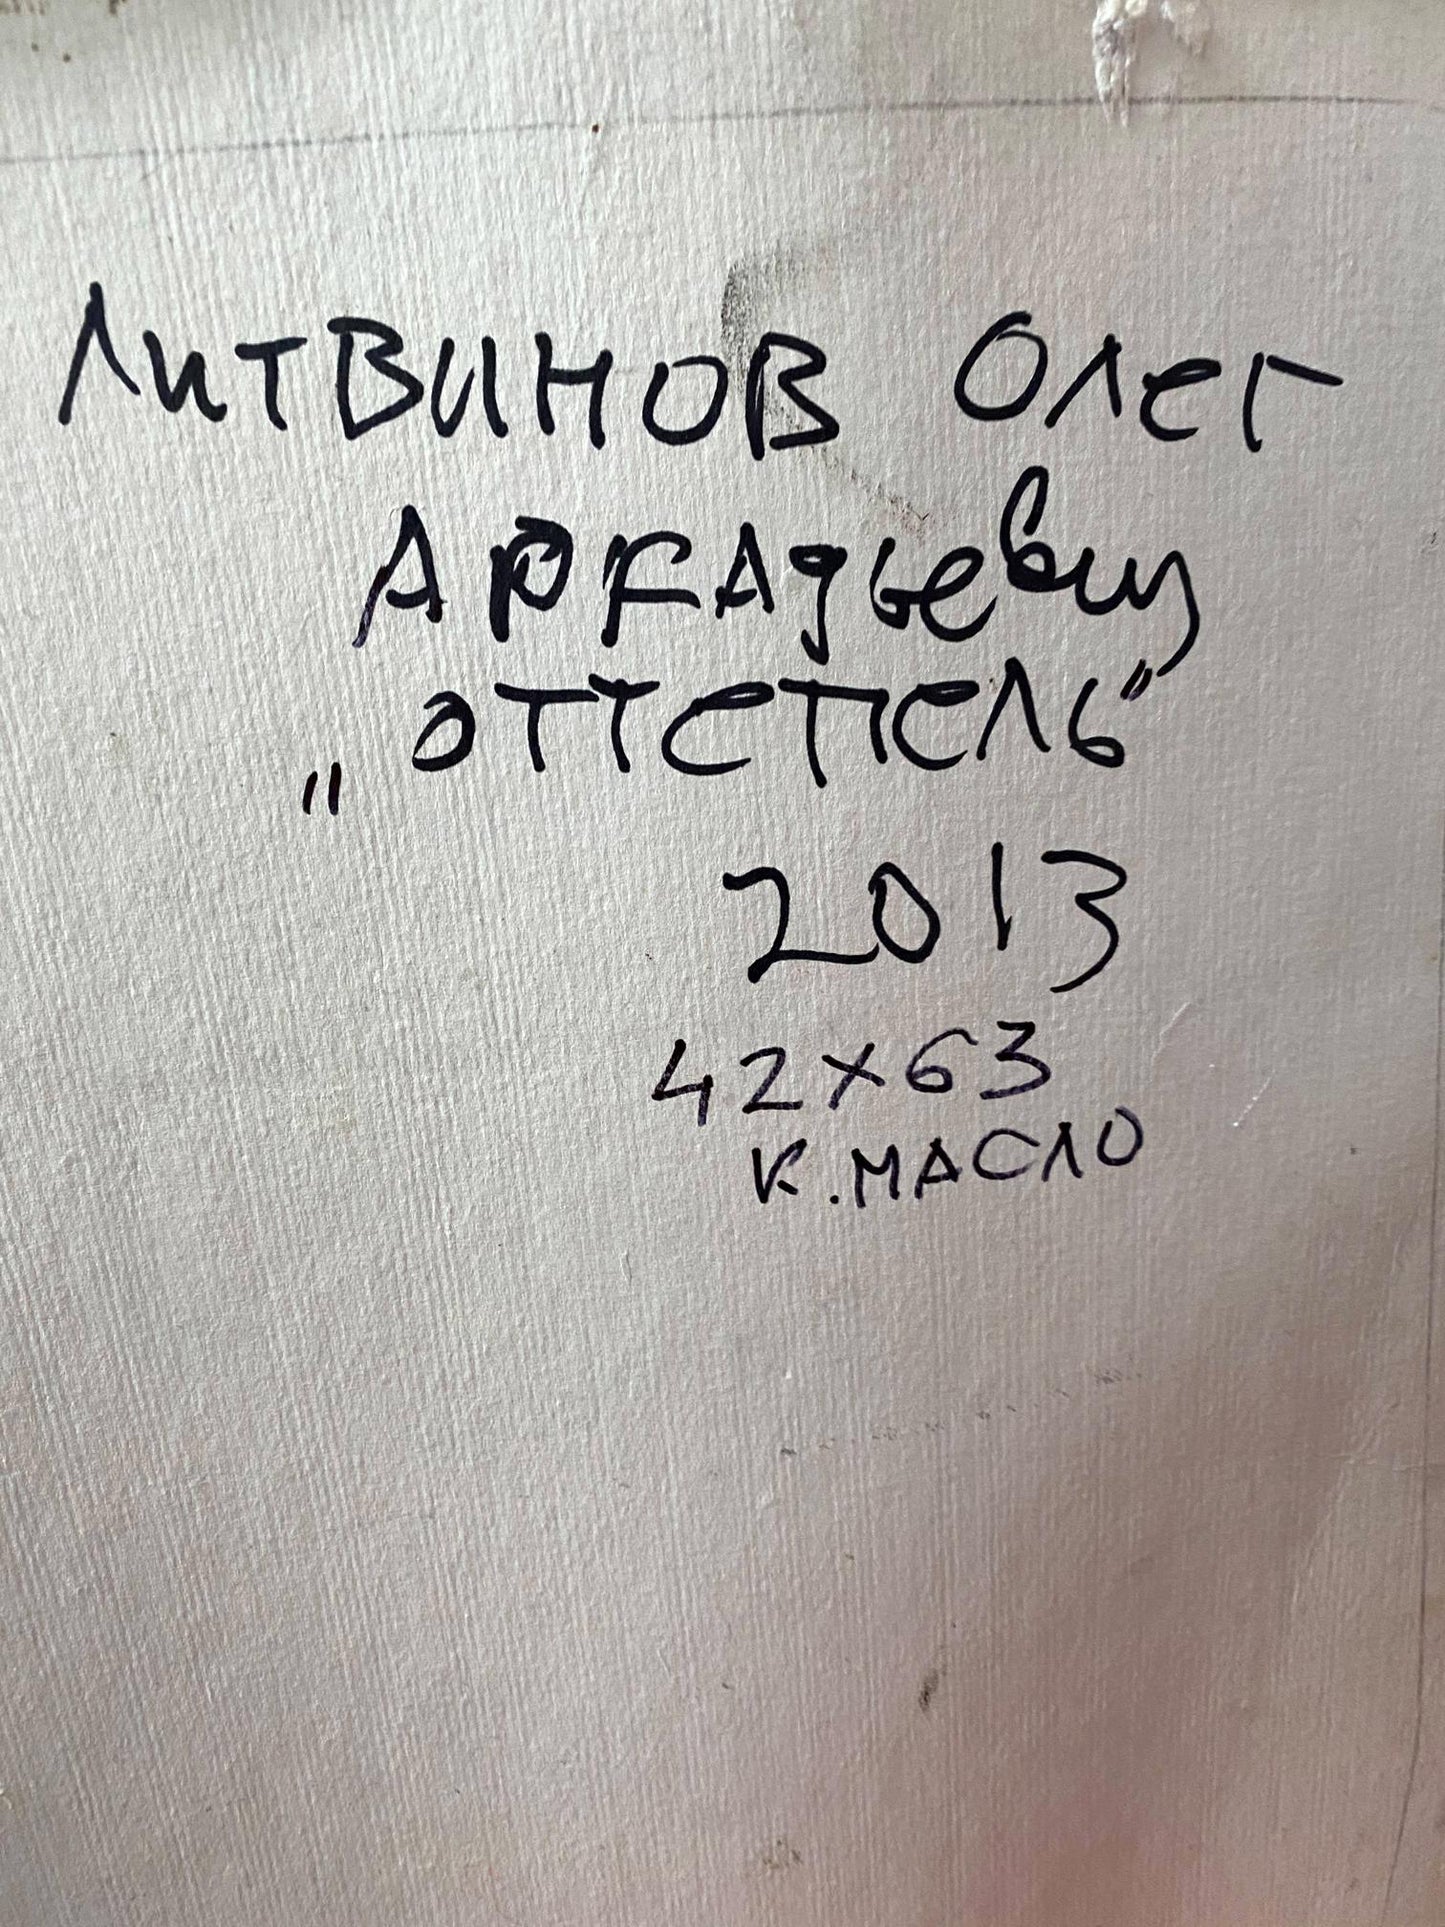 Литвинов Олег
Аркадьевич
„Оттепель"
2013
42х63
к. масло